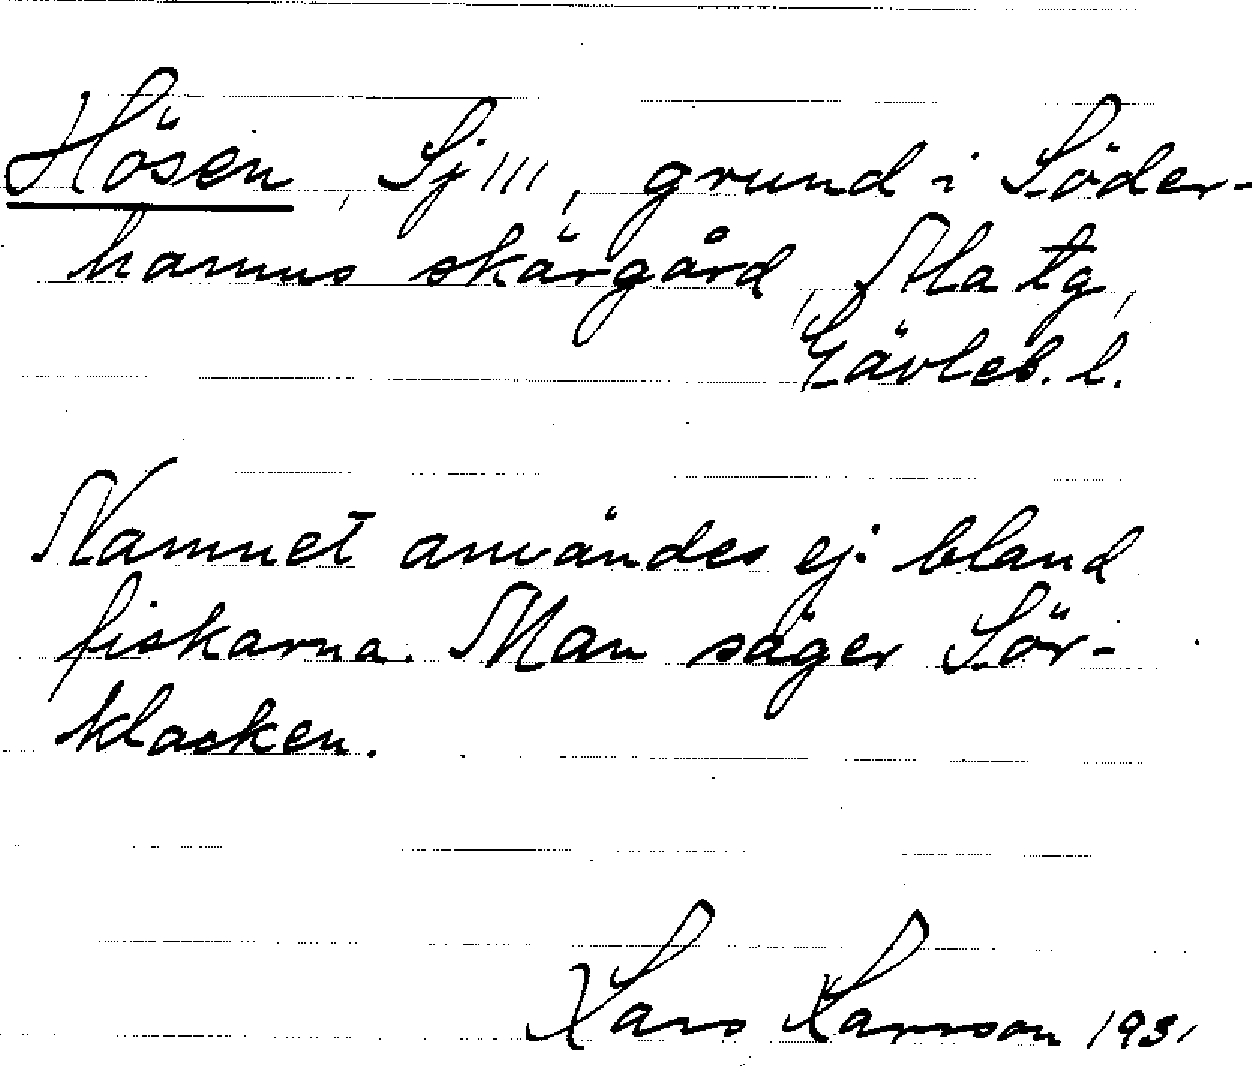 Hösen, Sj III, grund i Söder-
hamns skärgård, Ma tg,
Gävleb. l.
Namnet användes ej bland
fiskarna. Man säger Sör-
klacken.
Lars Larsson 1931